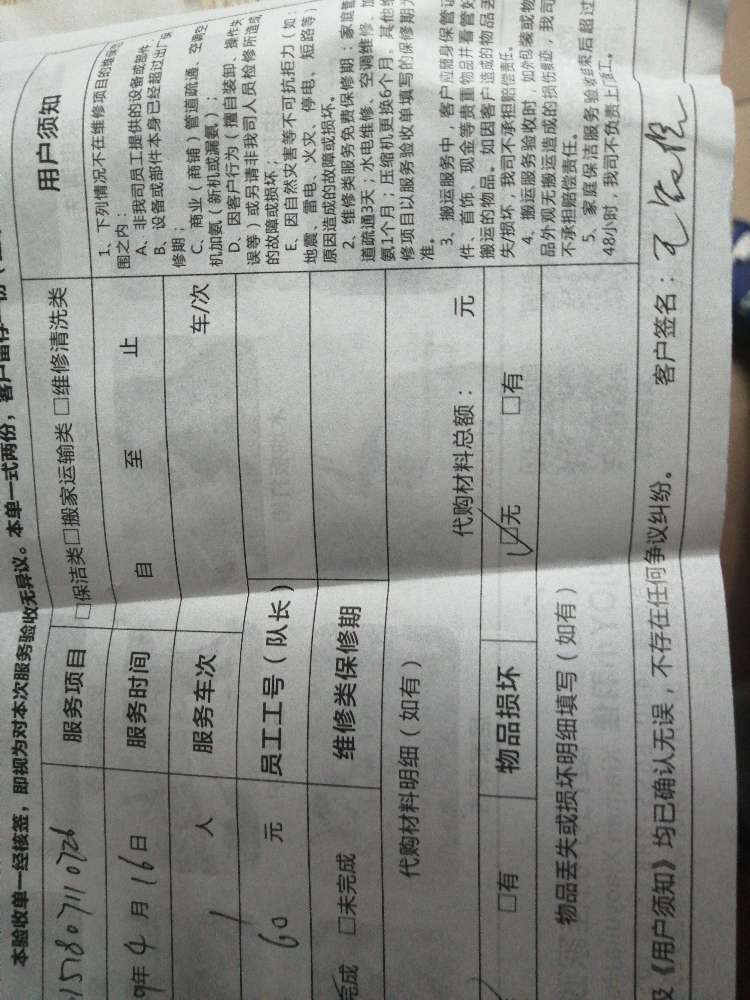 本验收单一经核签，即视为对本次服务验收无异议。本单一式两份，客户留存一份
15807110726
服务项目
□保洁类□搬家运输类□维修清洗类
9年4月16日
服务时间
自 至 止
1人
服务车次
车/次
60元
员工工号（队长）
完成 □未完成
维修类保修期
代购材料明细（如有）
代购材料总额： 元
□有
物品损坏
☑无 □有
物品丢失或损坏明细填写（如有）
及《用户须知》均已确认无误，不存在任何争议纠纷。
客户签名：
用户须知
1、下列情况不在维修项目的维保
围之内：
A、非我司员工提供的设备或部件
B、设备或部件本身已经超过出厂保
修期；
C、商业（商铺）管道疏通、空调空
机加氨（新机或漏氨）；
D、因客户行为（擅自装卸、操作失
误等）或另请非我司人员检修所造成
的故障或损坏；
E、因自然灾害等不可抗拒力（如：
地震、雷电、火灾、停电、短路等）
原因造成的故障或损坏。
2、维修类服务免费保修期：家庭管
道疏通3天；水电维修、空调维修、加
氨1个月；压缩机更换6个月。其他维
修项目以服务验收单填写的保修期为
准。
3、搬运服务中，客户应随身保管证
件、首饰、现金等贵重物品并看管好
搬运的物品。如因客户造成的物品丢
失/损坏，我司不承担赔偿责任。
4、搬运服务验收时，如外包装或物
品外观无搬运造成的损伤痕迹，我司
不承担赔偿责任。
5、家庭保洁服务验收结束后超过
48小时，我司不负责上门返工。